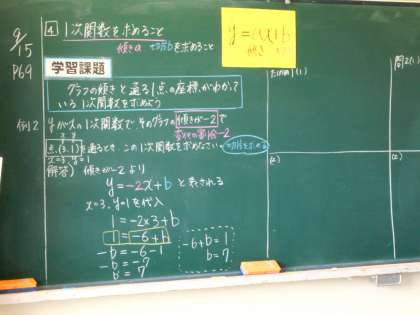 9/15
P69
4 1次関数を求めること
傾きa 切片bを求めること
y=ax+b
傾き
学習課題
グラフの傾きと通る1点の座標がわかって
いる1次関数を求めよう
例2 yがxの1次関数で、そのグラフの傾きが-2で
変化の割合-2
点(3,1)を通るとき、この1次関数を求めなさい。
切片を求める
x=3,y=1
解答) 傾きが-2より
y=-2x+b と表される
x=3, y=1を代入
1=-2×3+b
1=-6+b
-b=-6-1
-b=-7
b=7
-6+b=1
b=7
(2)
問2(1)
(2)